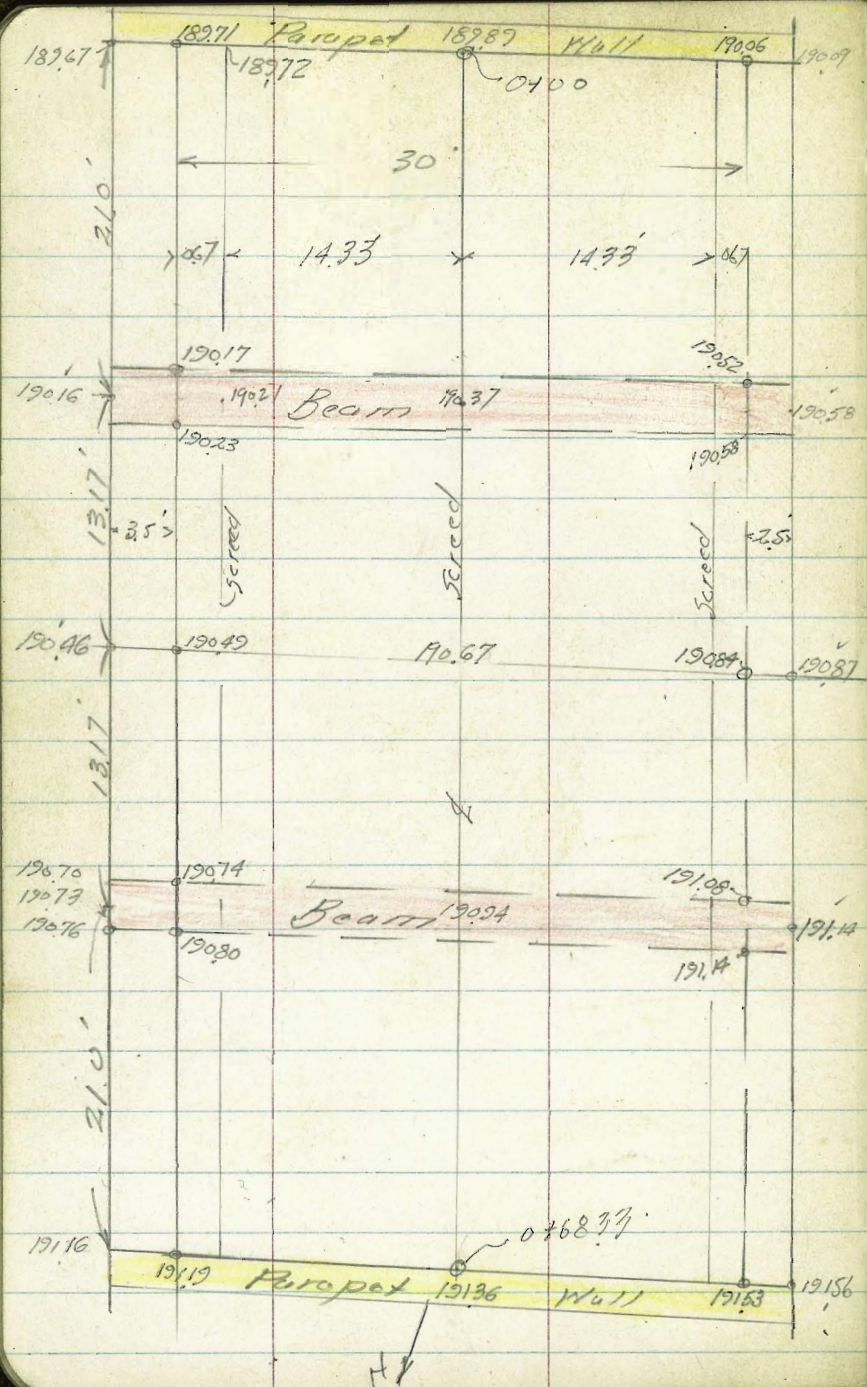 189.71 Parapet 189.89 Wall 190.06
189.67 189.72 0+00 190.09
30'
21.0'
.067 14.33' 14.33' .067
190.17 190.52
190.16 190.21 Beam 190.37 190.58
190.23 190.58
13.17'
3.5' Screed Screed Screed 2.5'
190.46 190.49 190.67 190.84 190.87
13.17'
190.70 190.74 191.08
190.73 Beam 190.94 191.14
190.76 190.80 191.14
21.0'
0+68.33
191.16
191.19 Parapet 191.36 Wall 191.53 191.56